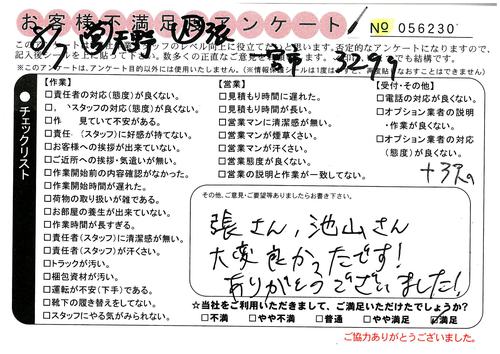 お客様不満足度アンケート
No 056230
8/7 天野 張
3299
【作業】
□責任者の対応(態度)が良くない。
スタッフの対応(態度)が良くない。
□作 見ていて不安がある。
□責任 (スタッフ)に好感が持てない。
□お客様への挨拶が出来ていない。
□ご近所への挨拶・気遣いが無い。
□作業開始前の内容確認がなかった。
□作業開始時間が遅れた。
□荷物の取り扱いが雑である。
□お部屋の養生が出来ていない。
□作業時間が長すぎる。
□責任者(スタッフ)に清潔感が無い。
□責任者(スタッフ)が汗くさい。
□トラックが汚い。
□梱包資材が汚い。
□運転が不安(下手)である。
□靴下の履き替えをしてない。
□スタッフにやる気がみられない。
【営業】
□見積もり時間に遅れた。
□見積もり時間が長い。
□営業マンに清潔感が無い。
□営業マンが煙草くさい。
□営業マンが汗くさい。
□営業態度が良くない。
□営業の説明と作業が一致してない。
【受付・その他】
□電話の対応が良くない。
□オプション業者の説明
・作業が良くない。
□オプション業者の対応
(態度)が良くない。
●チェックリスト
その他、ご意見・ご要望等ありましたらお書き下さい。
張さん,池山さん
大変良かったです!
ありがとうございました!
☆当社をご利用いただきまして、ご満足いただけたでしょうか?
□不満 □やや不満 □普通 □やや満足 ☑満足
ご協力ありがとうございました。